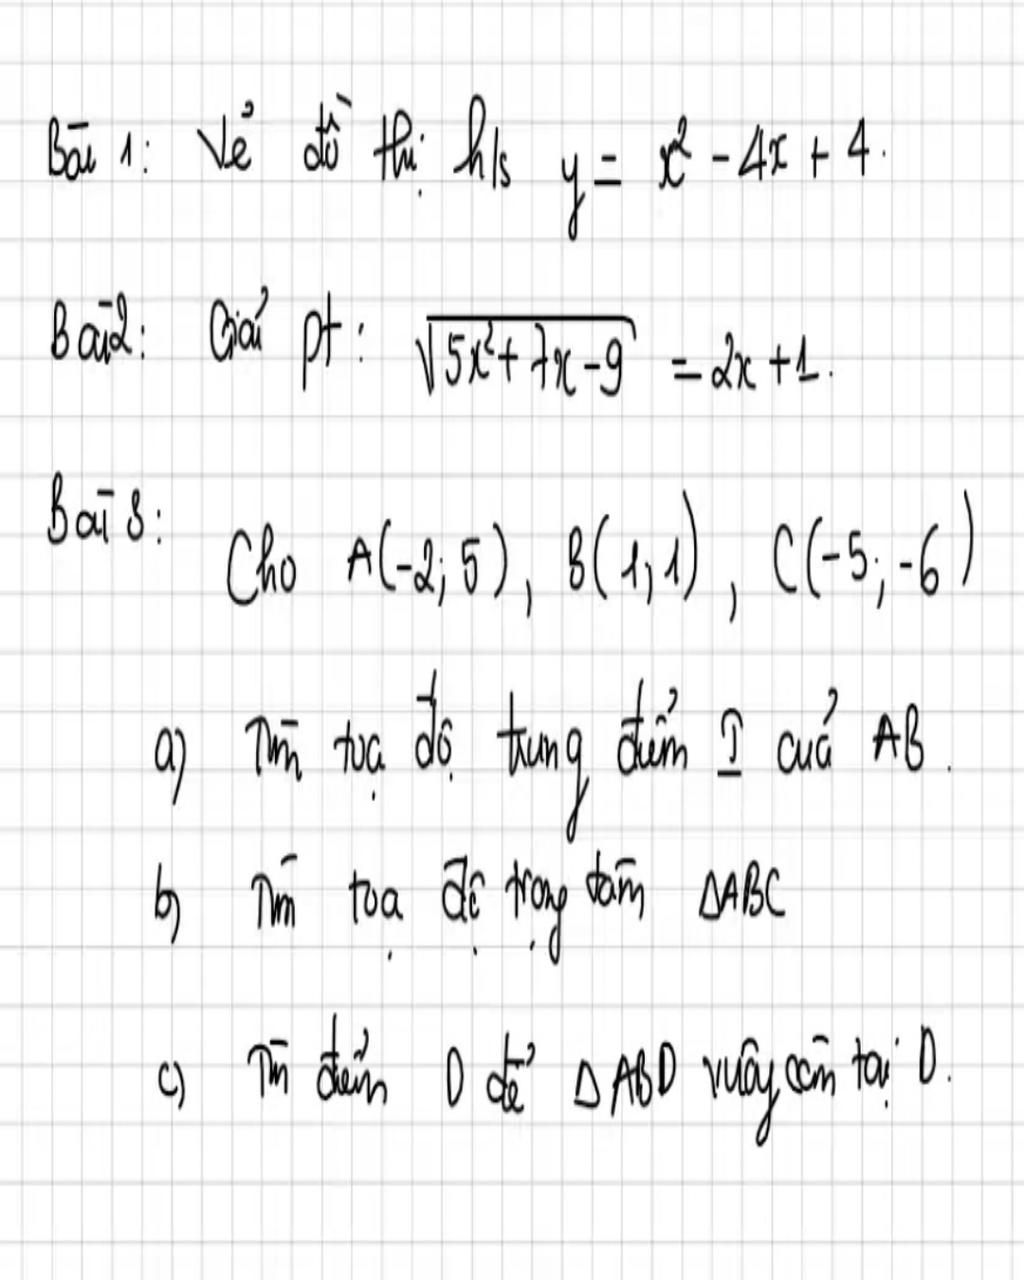 Bài 1: Vẽ đồ thị h/s y = x² - 4x + 4.
Bài 2: Giải pt: √(5x² + 7x - 9) = 2x + 1.
Bài 3:
Cho A(-2; 5), B(1; 1), C(-5; -6)
a) Tìm toạ độ trung điểm I của AB.
b) Tìm toạ độ trọng tâm ΔABC
c) Tìm điểm D để ΔABD vuông cân tại D.